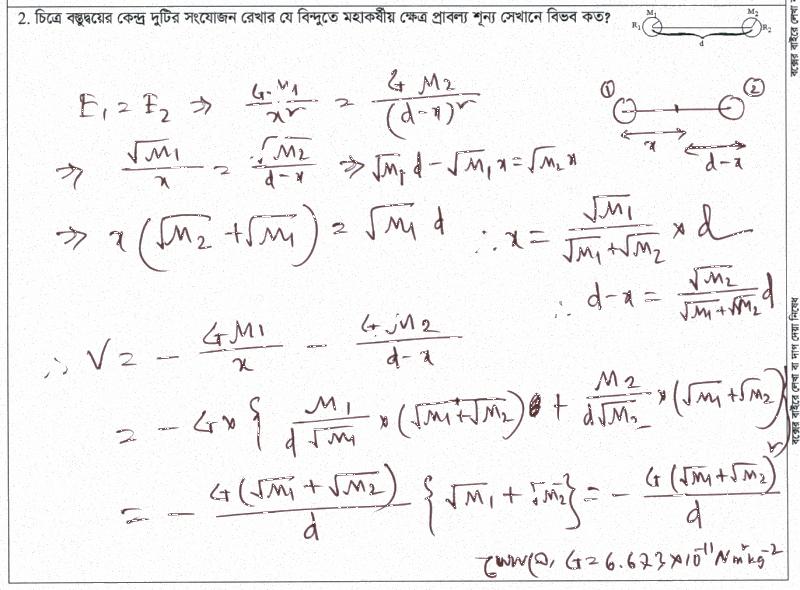 2. চিত্রে বস্তুদ্বয়ের কেন্দ্র দুটির সংযোজন রেখার যে বিন্দুতে মহাকর্ষীয় ক্ষেত্র প্রাবল্য শূন্য সেখানে বিভব কত?
M₁ M₂
R₁ R₂
d
E₁ = E₂ ⇒ G·M₁/x² = G M₂/(d-x)²
① ②
x d-x
⇒ √M₁/x = √M₂/(d-x) ⇒ √M₁ d - √M₁ x = √M₂ x
⇒ x(√M₂ + √M₁) = √M₁ d ∴ x = √M₁/(√M₁+√M₂) × d
∴ d-x = √M₂/(√M₁+√M₂) d
∴ V = - GM₁/x - GM₂/(d-x)
= - G × { M₁/(d√M₁) × (√M₁+√M₂) + M₂/(d√M₂) × (√M₁+√M₂) }
= - G(√M₁ + √M₂)/d {√M₁ + √M₂} = - G(√M₁+√M₂)²/d
G = 6.673×10⁻¹¹ Nm²kg⁻²
বক্সের বাইরে লেখা বা দাগ দেয়া নিষেধ
বক্সের বাইরে লেখা